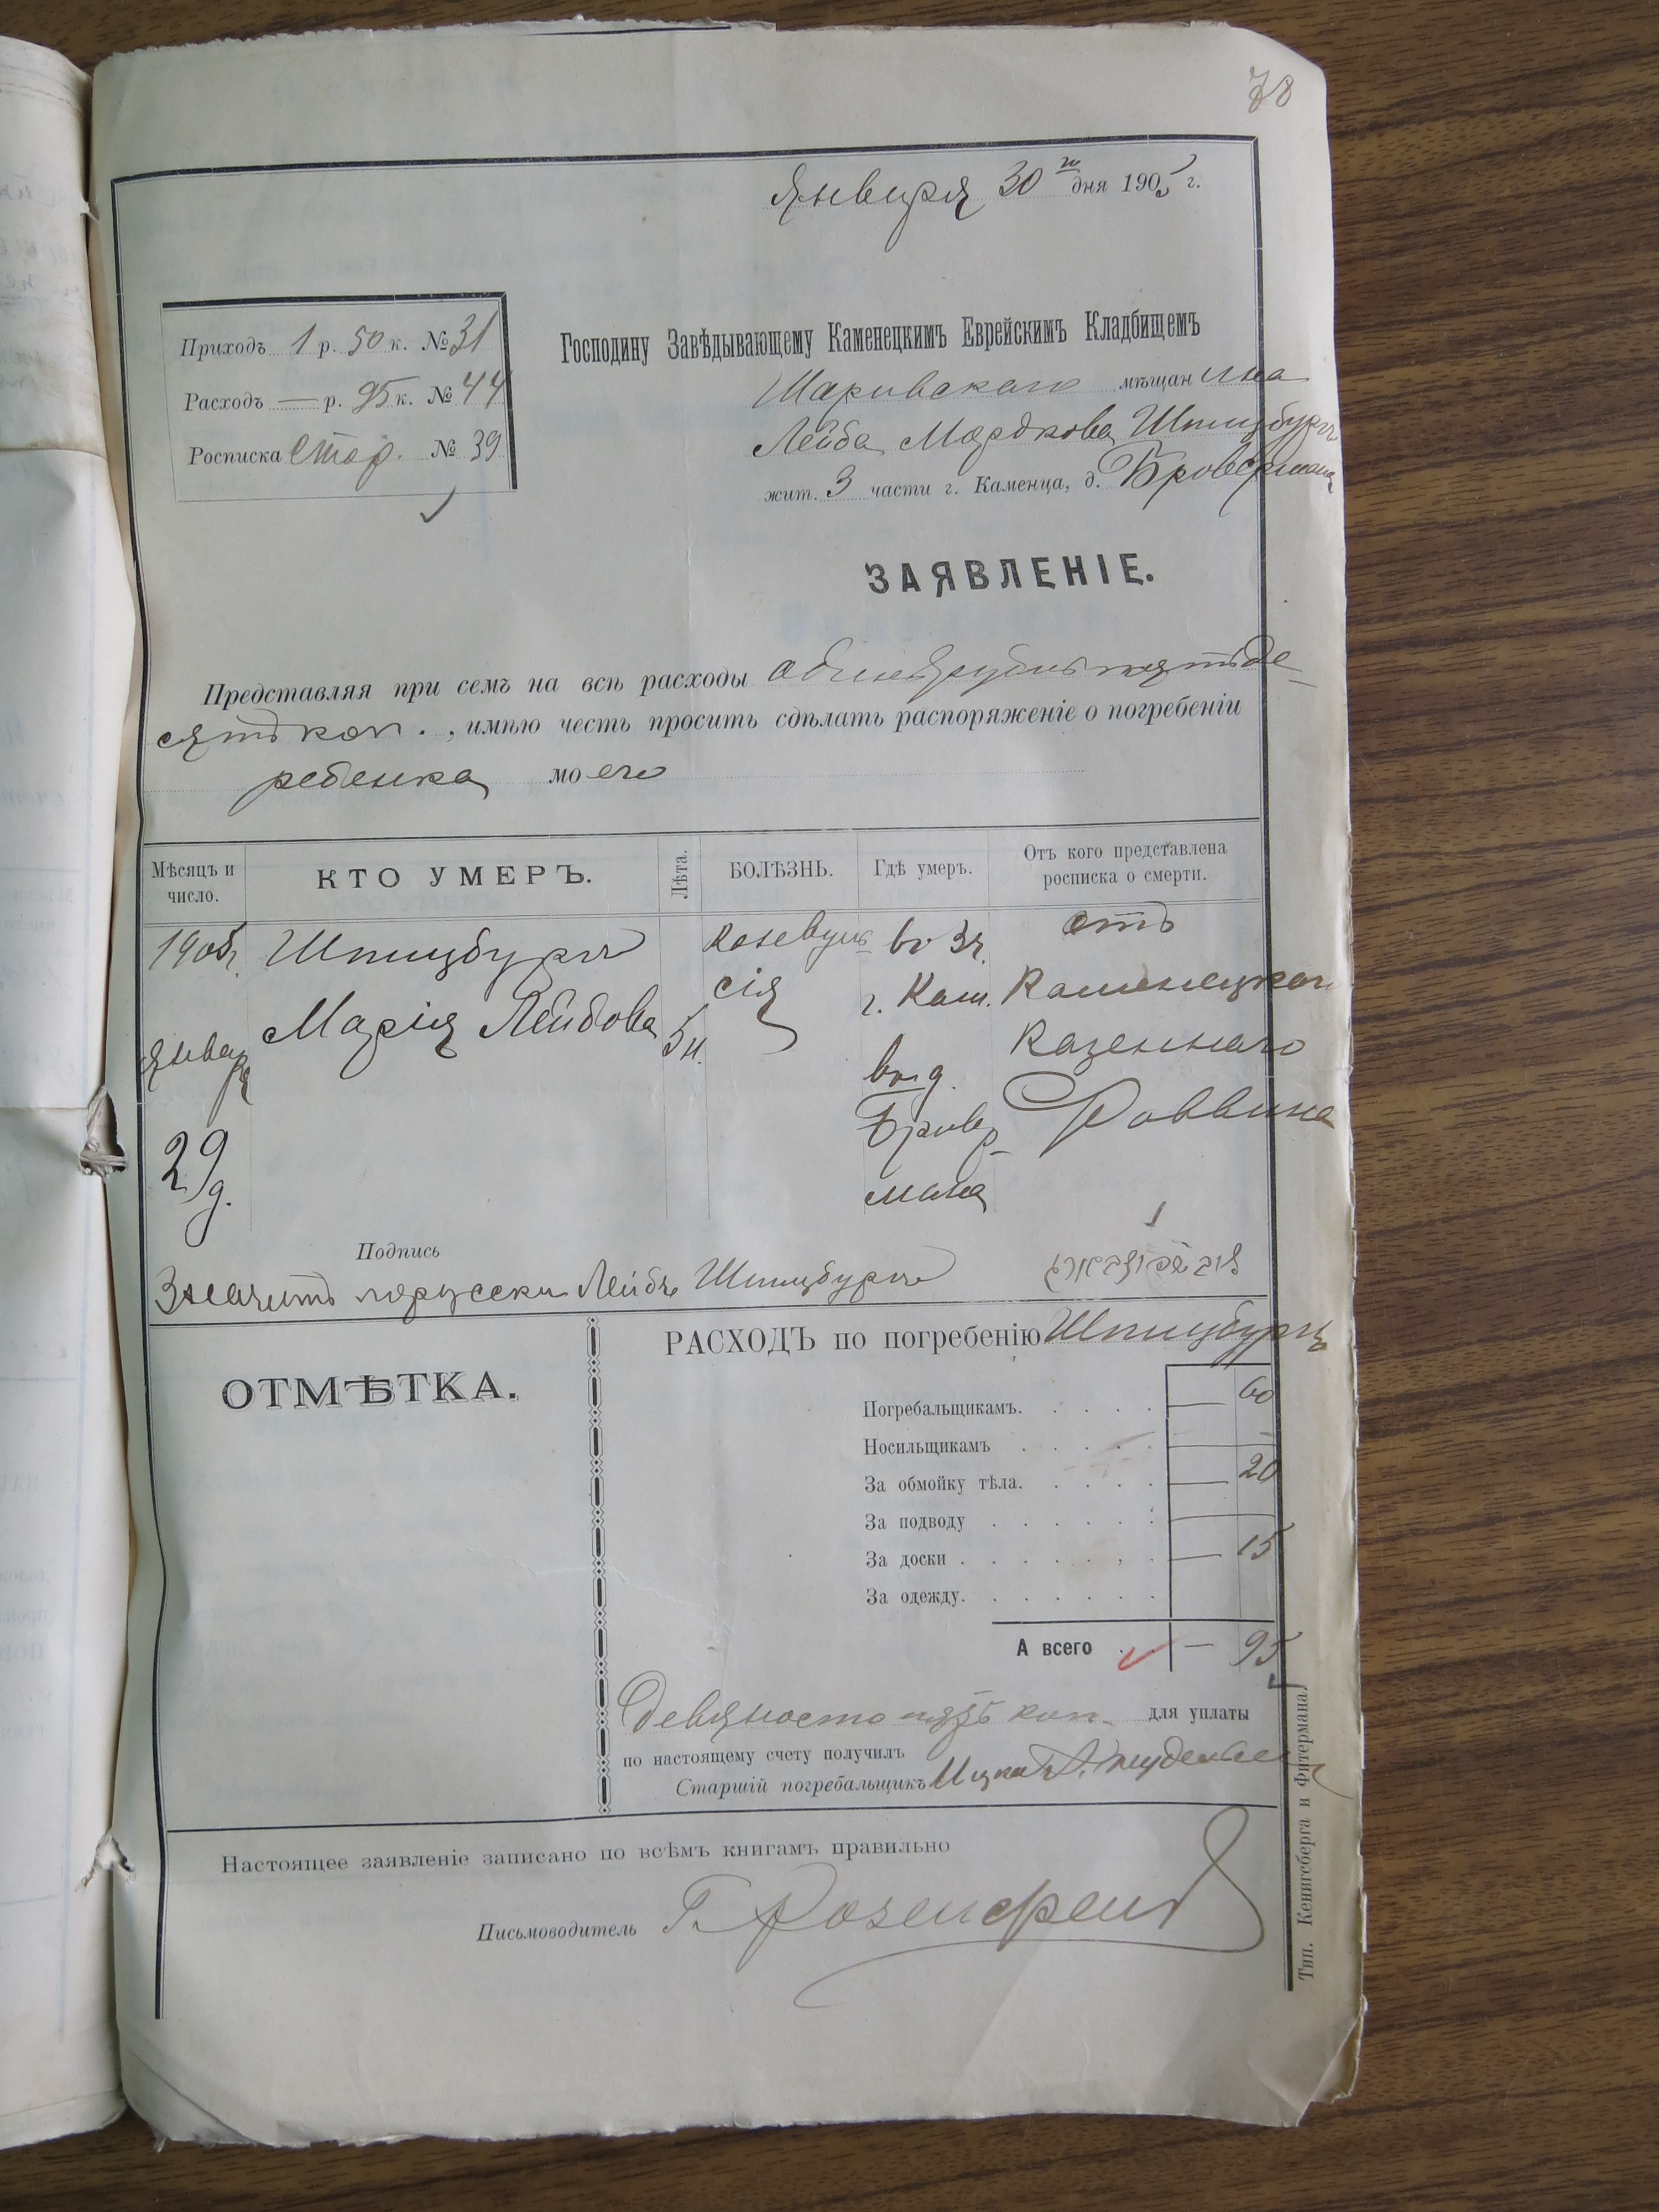 78
Января 30 го дня 1905 г.
Приходъ 1 р. 50 к. № 31
Расходъ — р. 95 к. № 44
Росписка Стар. № 39
Господину Завѣдывающему Каменецкимъ Еврейскимъ Кладбищемъ
Шаривскаго мѣщанина
Лейба Мордкова Шпицбургъ
жит. 3 части г. Каменца, д. Бровермана
ЗАЯВЛЕНІЕ.
Представляя при семъ на всѣ расходы одинъ рубль пятьде-
сятъ коп., имѣю честь просить сдѣлать распоряженіе о погребеніи
ребенка моего
Мѣсяцъ и число.
КТО УМЕРЪ.
Лѣта.
БОЛѢЗНЬ.
Гдѣ умеръ.
Отъ кого представлена росписка о смерти.
1905 г.
Января
29 д.
Шпицбургъ
Марія Лейбова
5 н.
Конвуль
сія
во 3 ч.
г. Кам.
во д.
Бровер-
мана
отъ
Каменецкаго
Казеннаго
Раввина
Подпись
Значитъ порусски Лейбъ Шпицбургъ
ОТМѢТКА.
РАСХОДЪ по погребенію Шпицбургъ
Погребальщикамъ. — 60
Носильщикамъ —
За обмойку тѣла. — 20
За подводу
За доски — 15
За одежду.
А всего — 95
Девяносто пять коп. для уплаты
по настоящему счету получилъ
Старшій погребальщикъ Ицко
Настоящее заявленіе записано по всѣмъ книгамъ правильно
Письмоводитель Г. Розенфельд
Тип. Кенигсберга и Фитермана